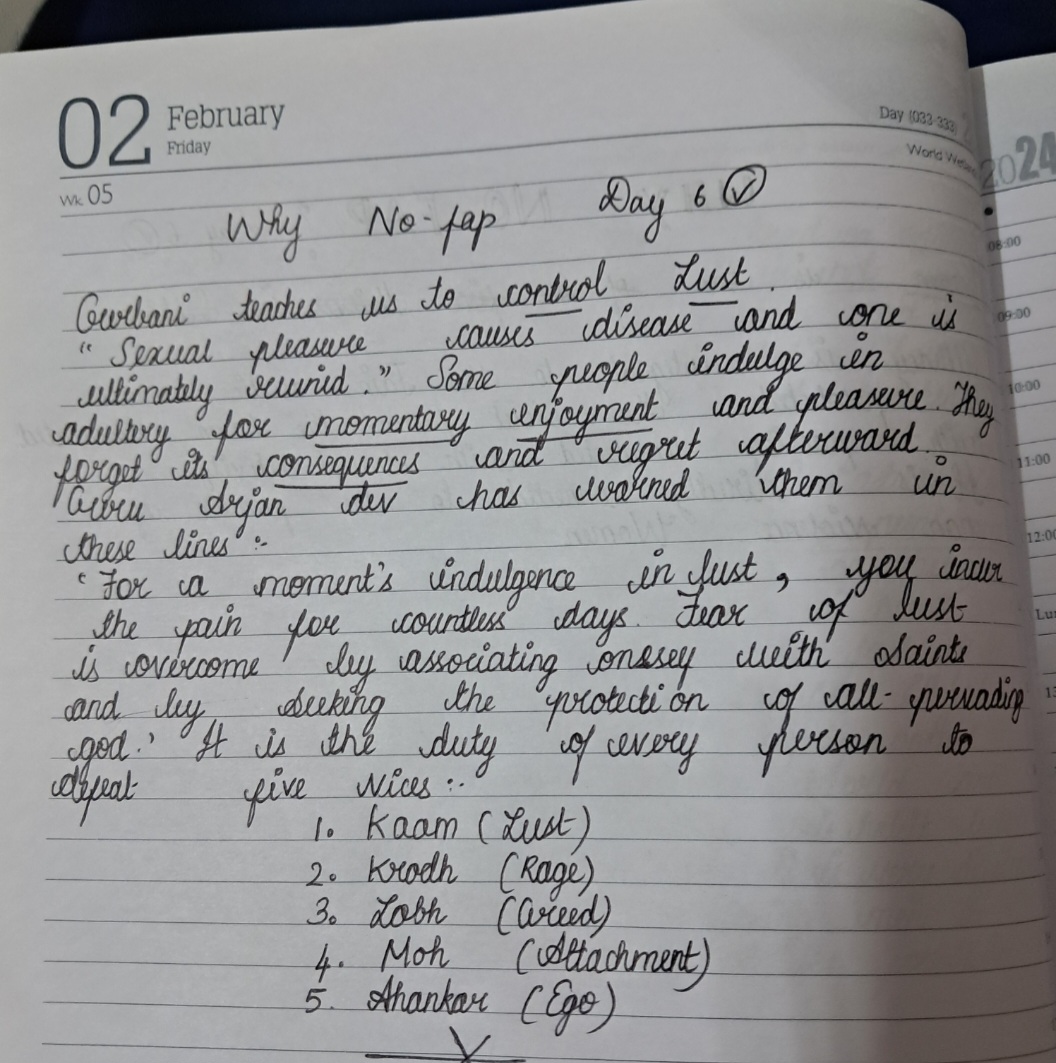 02 February
Friday
Day (033-333)
Wk. 05
2024
Why No-fap Day 6
Gurbani teaches us to control Lust.
"Sexual pleasure causes disease and one is
ultimately ruined." Some people indulge in
adultery for momentary enjoyment and pleasure. They
forget its consequences and regret afterward.
Guru Arjan dev has warned them in
these lines :-
'For a moment's indulgence in lust, you incur
the pain for countless days. Fear of lust
is overcome by associating onesey with saints
and by seeking the protection of all-pervading
god.' It is the duty of every person to
defeat five vices :-
1. Kaam (Lust)
2. Krodh (Rage)
3. Lobh (Greed)
4. Moh (Attachment)
5. Ahankar (Ego)
08:00
09:00
10:00
11:00
12:00